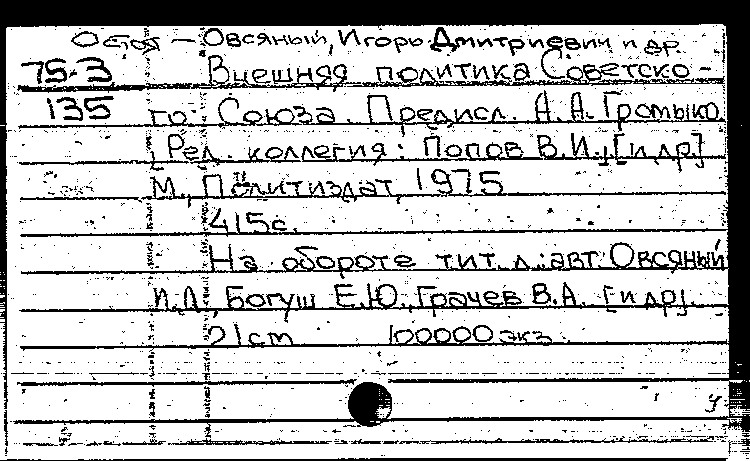 Овсяный, Игорь Дмитриевич и др.
75-3 Внешняя политика Советско-
135 го Союза. Предисл. А.А. Громыко
[Ред. коллегия: Попов В.И., [и др]
М., Политиздат, 1975
415с.
На обороте тит. л.: авт. Овсяный
И.Д., Богуш Е.Ю., Грачев В.А. [и др].
21cm 100000 экз.